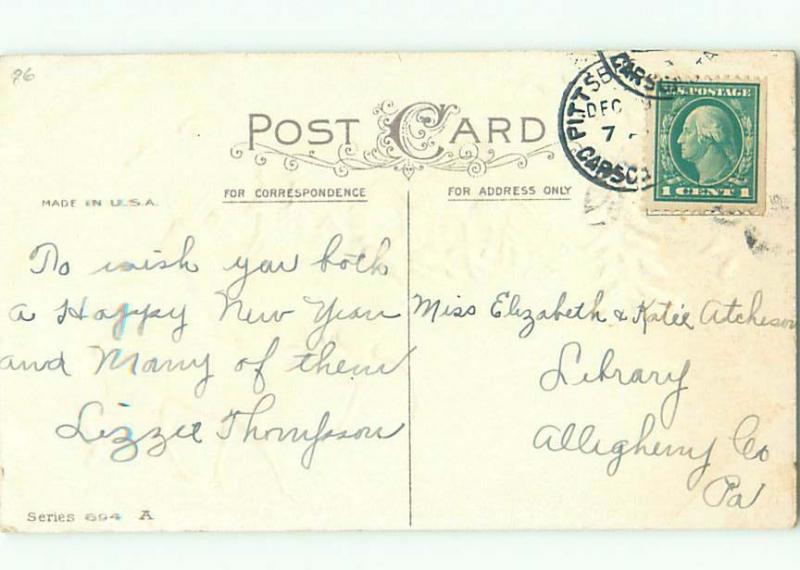 96
POST CARD
PITTSB
CARSO
DEC
7
U.S. POSTAGE
1 CENT 1
MADE IN U.S.A.
FOR CORRESPONDENCE
FOR ADDRESS ONLY
To wish you both
a Happy New Year
and Many of them
Lizzie Thompson
Miss Elizabeth & Katie Atcheson
Library
Allegheny Co
Pa
Series 694 A